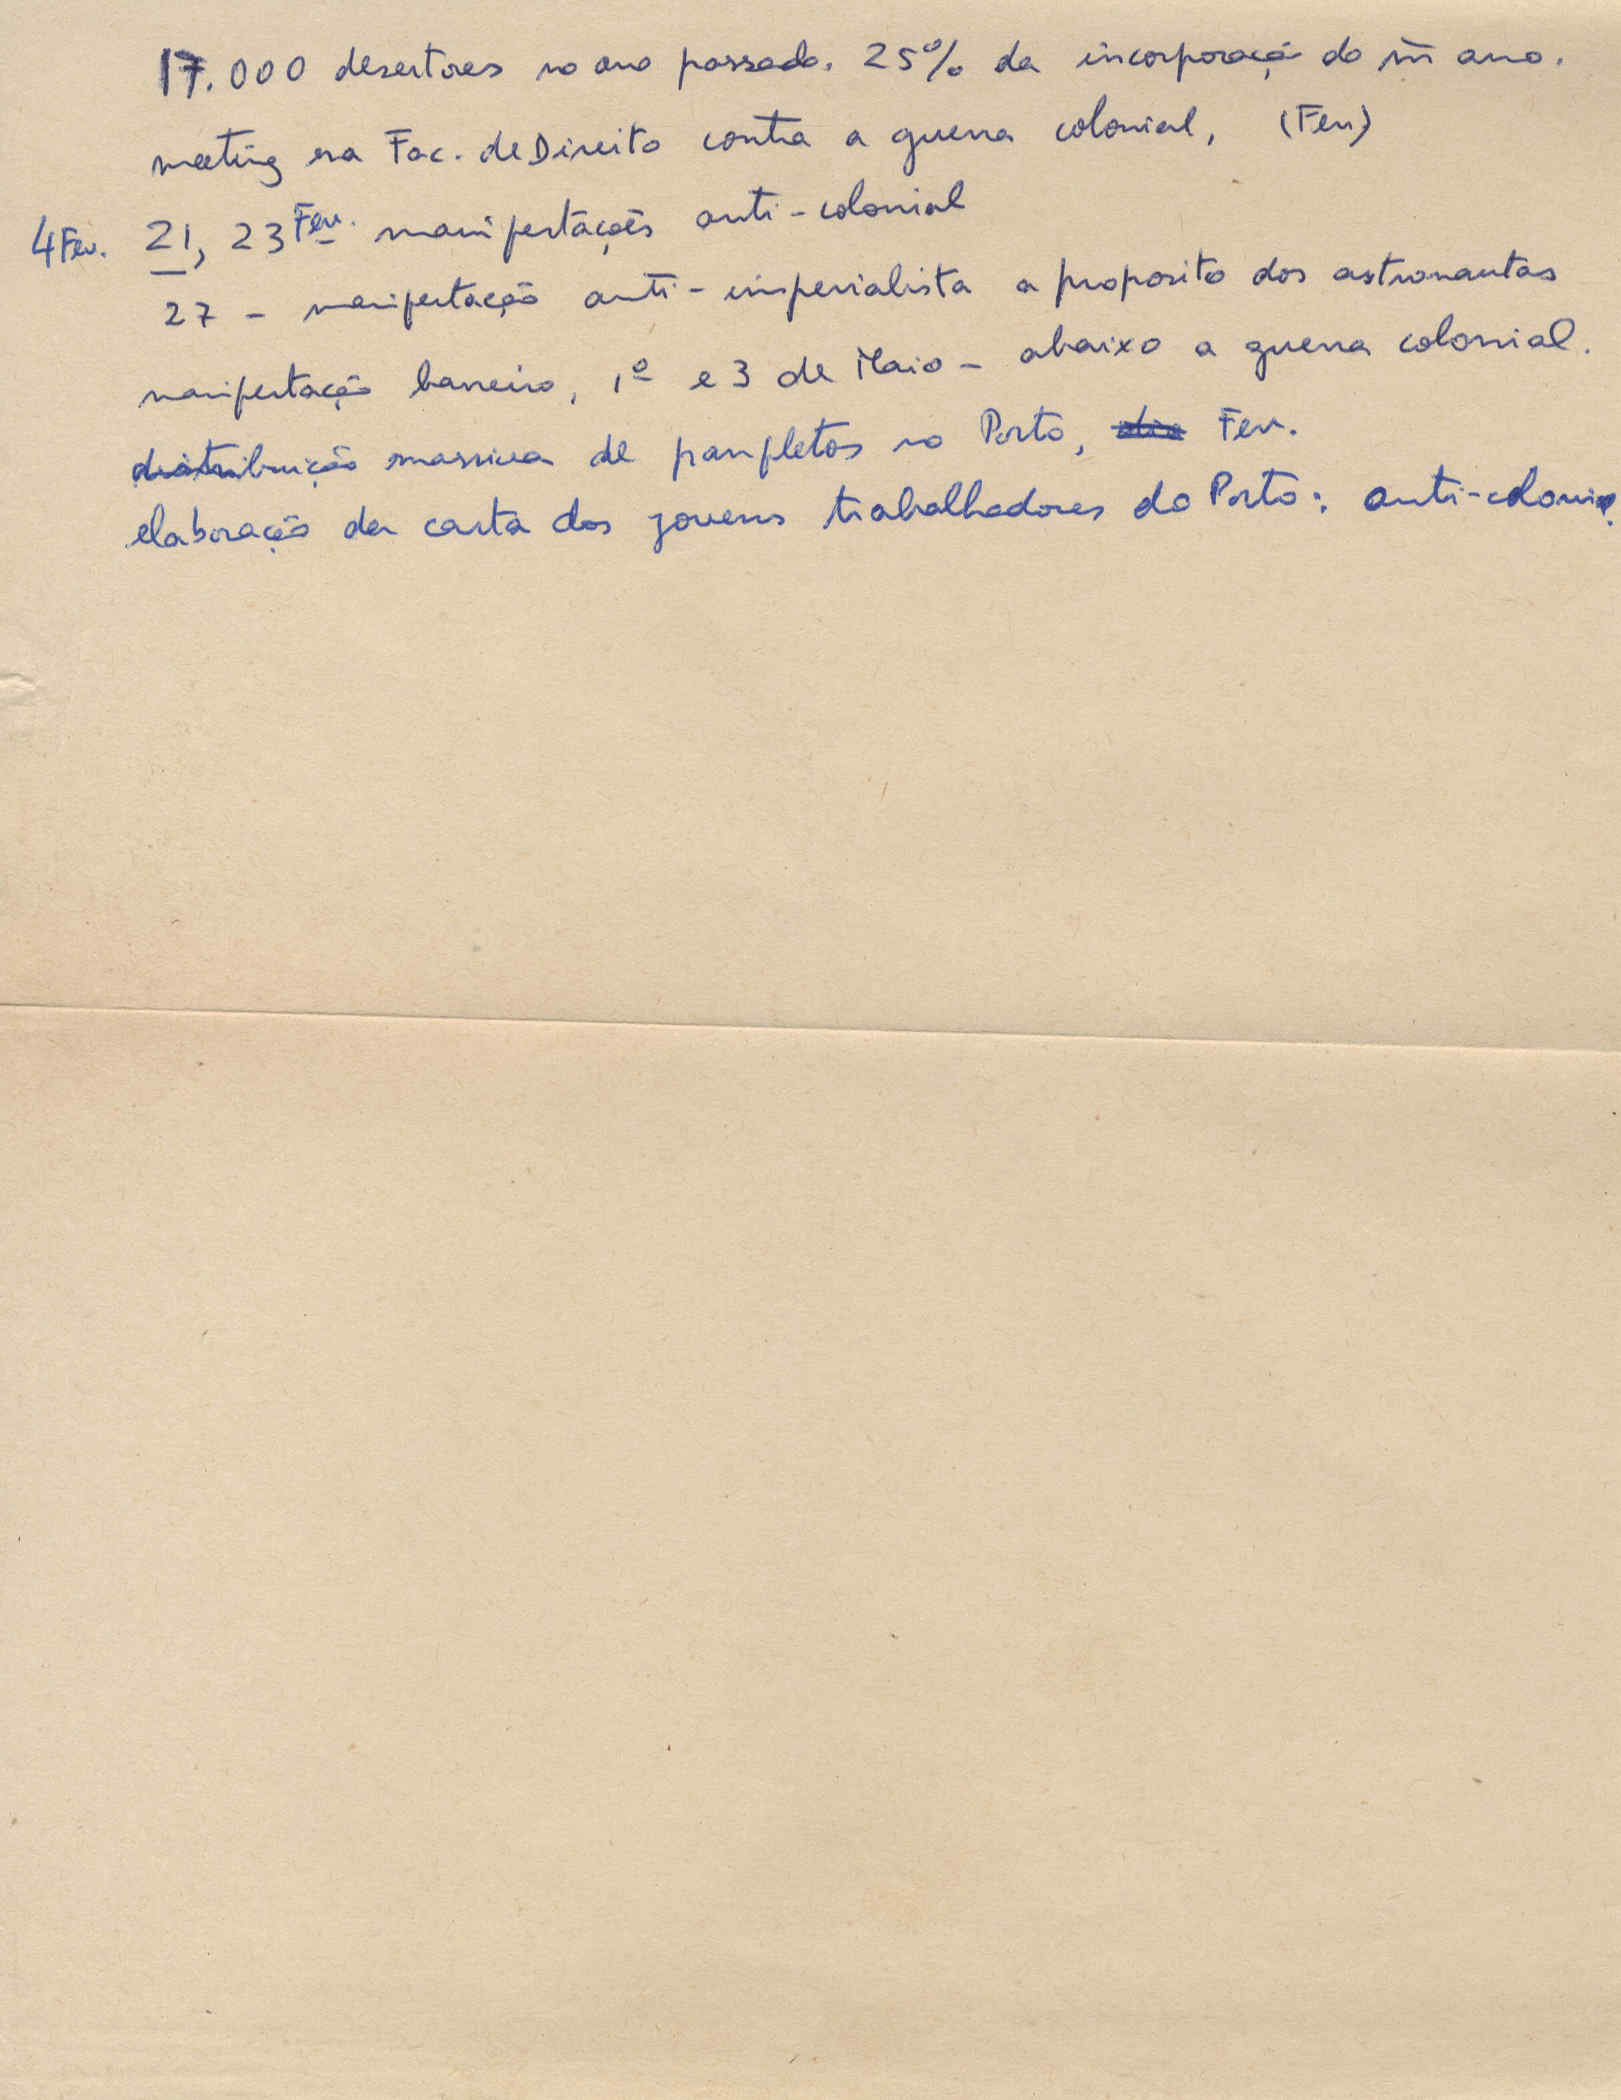 17.000 desertores no ano passado. 25% da incorporação do m̃ ano.
meeting na Fac. de Direito contra a guerra colonial, (Fev)
4 Fev. 21, 23 Fev. manifestações anti-colonial
27 - manifestação anti-imperialista a proposito dos astronautas
manifestação barreiro, 1º e 3 de Maio - abaixo a guerra colonial.
distribuição massiva de panfletos no Porto, dia Fev.
elaboração da carta dos jovens trabalhadores do Porto: anti-colonial